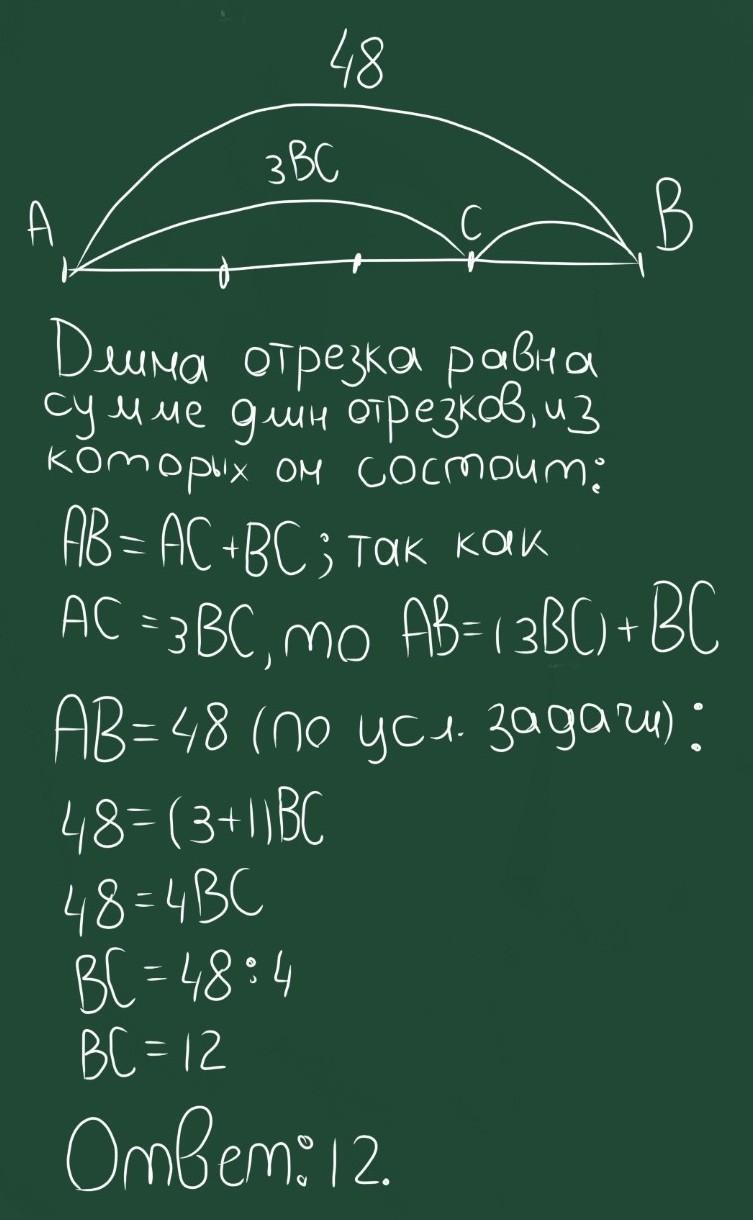 48
3BC
A
C
B
Длина отрезка равна
сумме длин отрезков, из
которых он состоит:
AB = AC + BC; так как
AC = 3BC, то AB = (3BC) + BC
AB = 48 (по усл. задачи):
48 = (3+1)BC
48 = 4BC
BC = 48 : 4
BC = 12
Ответ: 12.